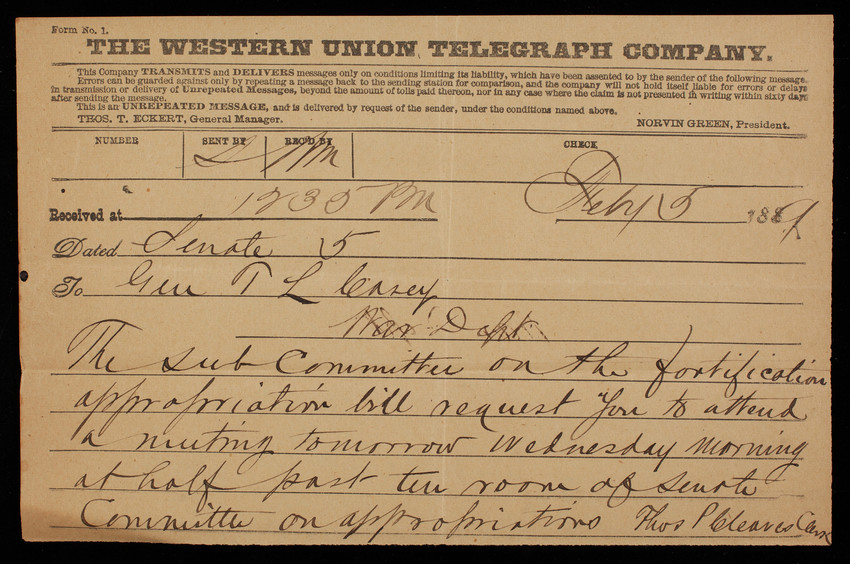 Form No. 1.
THE WESTERN UNION TELEGRAPH COMPANY.
This Company TRANSMITS and DELIVERS messages only on conditions limiting its liability, which have been assented to by the sender of the following message.
Errors can be guarded against only by repeating a message back to the sending station for comparison, and the company will not hold itself liable for errors or delays
in transmission or delivery of Unrepeated Messages, beyond the amount of tolls paid thereon, nor in any case where the claim is not presented in writing within sixty days
after sending the message.
This is an UNREPEATED MESSAGE, and is delivered by request of the sender, under the conditions named above.
THOS. T. ECKERT, General Manager. NORVIN GREEN, President.
NUMBER SENT BY REC'D BY CHECK
Received at 1235 PM Feby 5 1889
Dated Senate 5
To Gen T L Casey
War Dept
The sub Committee on the fortification
appropriation bill request you to attend
a meeting tomorrow Wednesday morning
at half past ten room of Senate
Committee on appropriations Thos P Cleaves Clerk